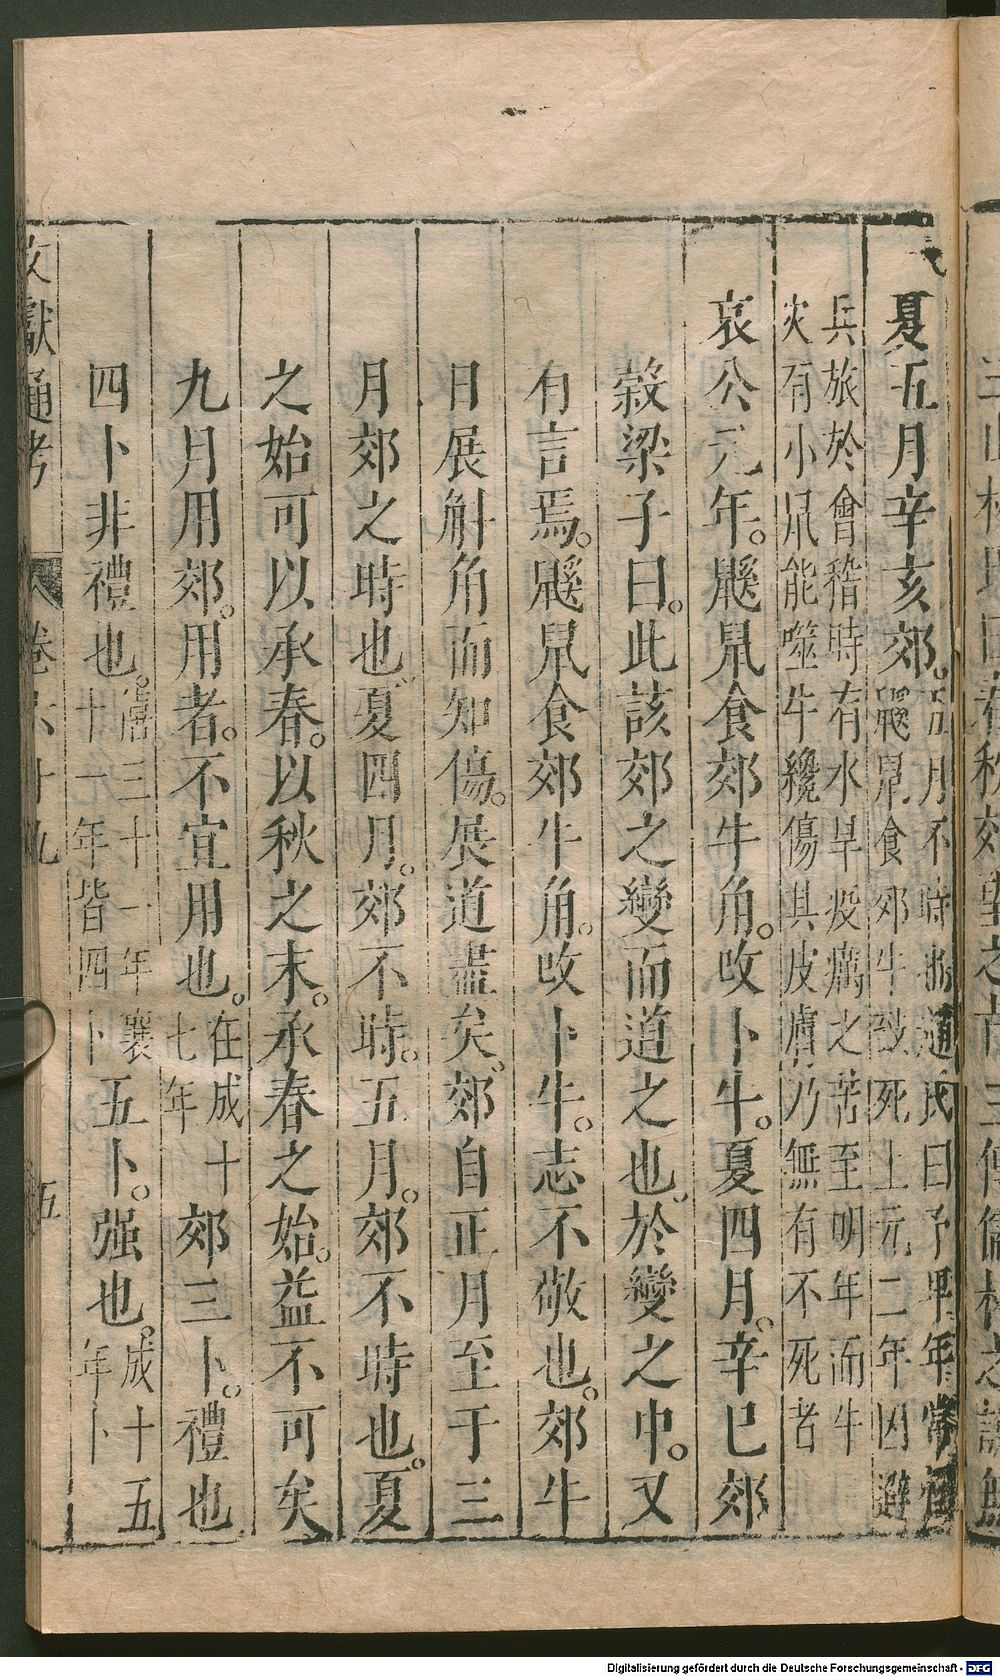 夏五月辛亥郊。書月不時也趙氏曰予早年嘗
鼷鼠食郊牛致死上元二年因避
兵旅於會稽時有水旱疫癘之苦至明年而牛
灾有小鼠能噬牛纔傷其皮膚乃無有不死者
哀公元年。鼷鼠食郊牛角。改卜牛。夏四月。辛巳郊
榖梁子曰。此該郊之變而道之也。於變之中。又
有言焉。鼷鼠食郊牛角。改卜牛。志不敬也。郊牛
日展斛角而知傷。展道盡矣。郊自正月至于三
月郊之時也。夏四月。郊不時。五月。郊不時也。夏
之始可以承春。以秋之末。承春之始。益不可矣
九月用郊。用者。不宜用也。在成十
七年
郊三卜。禮也
四卜非禮也。僖三十一年襄
十一年皆四卜
五卜。强也。成十
年卜
五
文獻通考
卷六十九
五
Digitalisierung gefördert durch die Deutsche Forschungsgemeinschaft - DFG